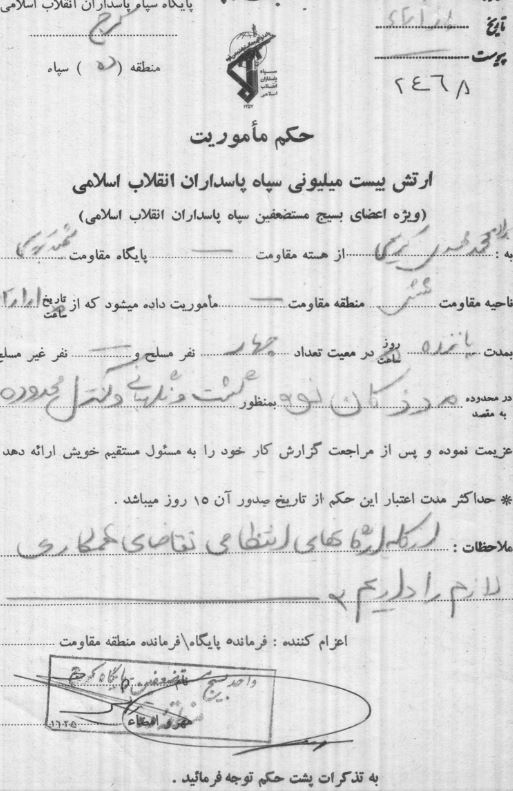 پایگاه سپاه پاسداران انقلاب اسلامی
کرج
منطقه ( ده ) سپاه
تاریخ
پیوست
۲۴٦۸
سپاه
پاسداران
انقلاب
اسلامی
حکم مأموریت
ارتش بیست میلیونی سپاه پاسداران انقلاب اسلامی
(ویژه اعضای بسیج مستضعفین سپاه پاسداران انقلاب اسلامی)
به : برادر محمد مهدی از هسته مقاومت — پایگاه مقاومت
ناحیه مقاومت شش منطقه مقاومت — مأموریت داده میشود که از تاریخ ساعت
بمدت پانزده روز ساعت در معیت تعداد چهار نفر مسلح و — نفر غیر مسلح
در محدوده به مقصد بمنظور گشت و نگهبانی و کنترل محدوده
عزیمت نموده و پس از مراجعت گزارش کار خود را به مسئول مستقیم خویش ارائه دهد
* حداکثر مدت اعتبار این حکم از تاریخ صدور آن ۱۵ روز میباشد .
ملاحظات : از کلیه ارگانهای انتظامی تقاضای همکاری
لازم را داریم
اعزام کننده : فرمانده پایگاه\فرمانده منطقه مقاومت
واحد بسیج مستضعفین پایگاه کرج
مهر و امضاء
به تذکرات پشت حکم توجه فرمائید .